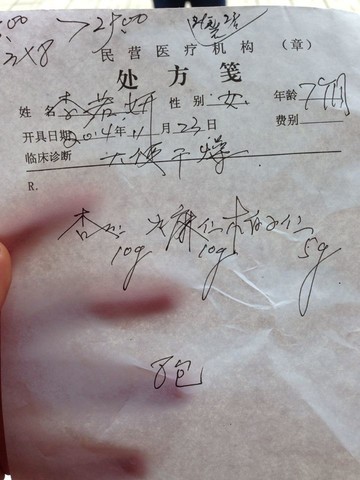 >25.00
3×8
民营医疗机构（章）
处方笺
姓名 李若妍 性别 女 年龄 7个月
开具日期 2014年11月23日 费别
临床诊断 大便干燥
R.
杏仁10g 火麻仁10g 柏子仁5g
8包